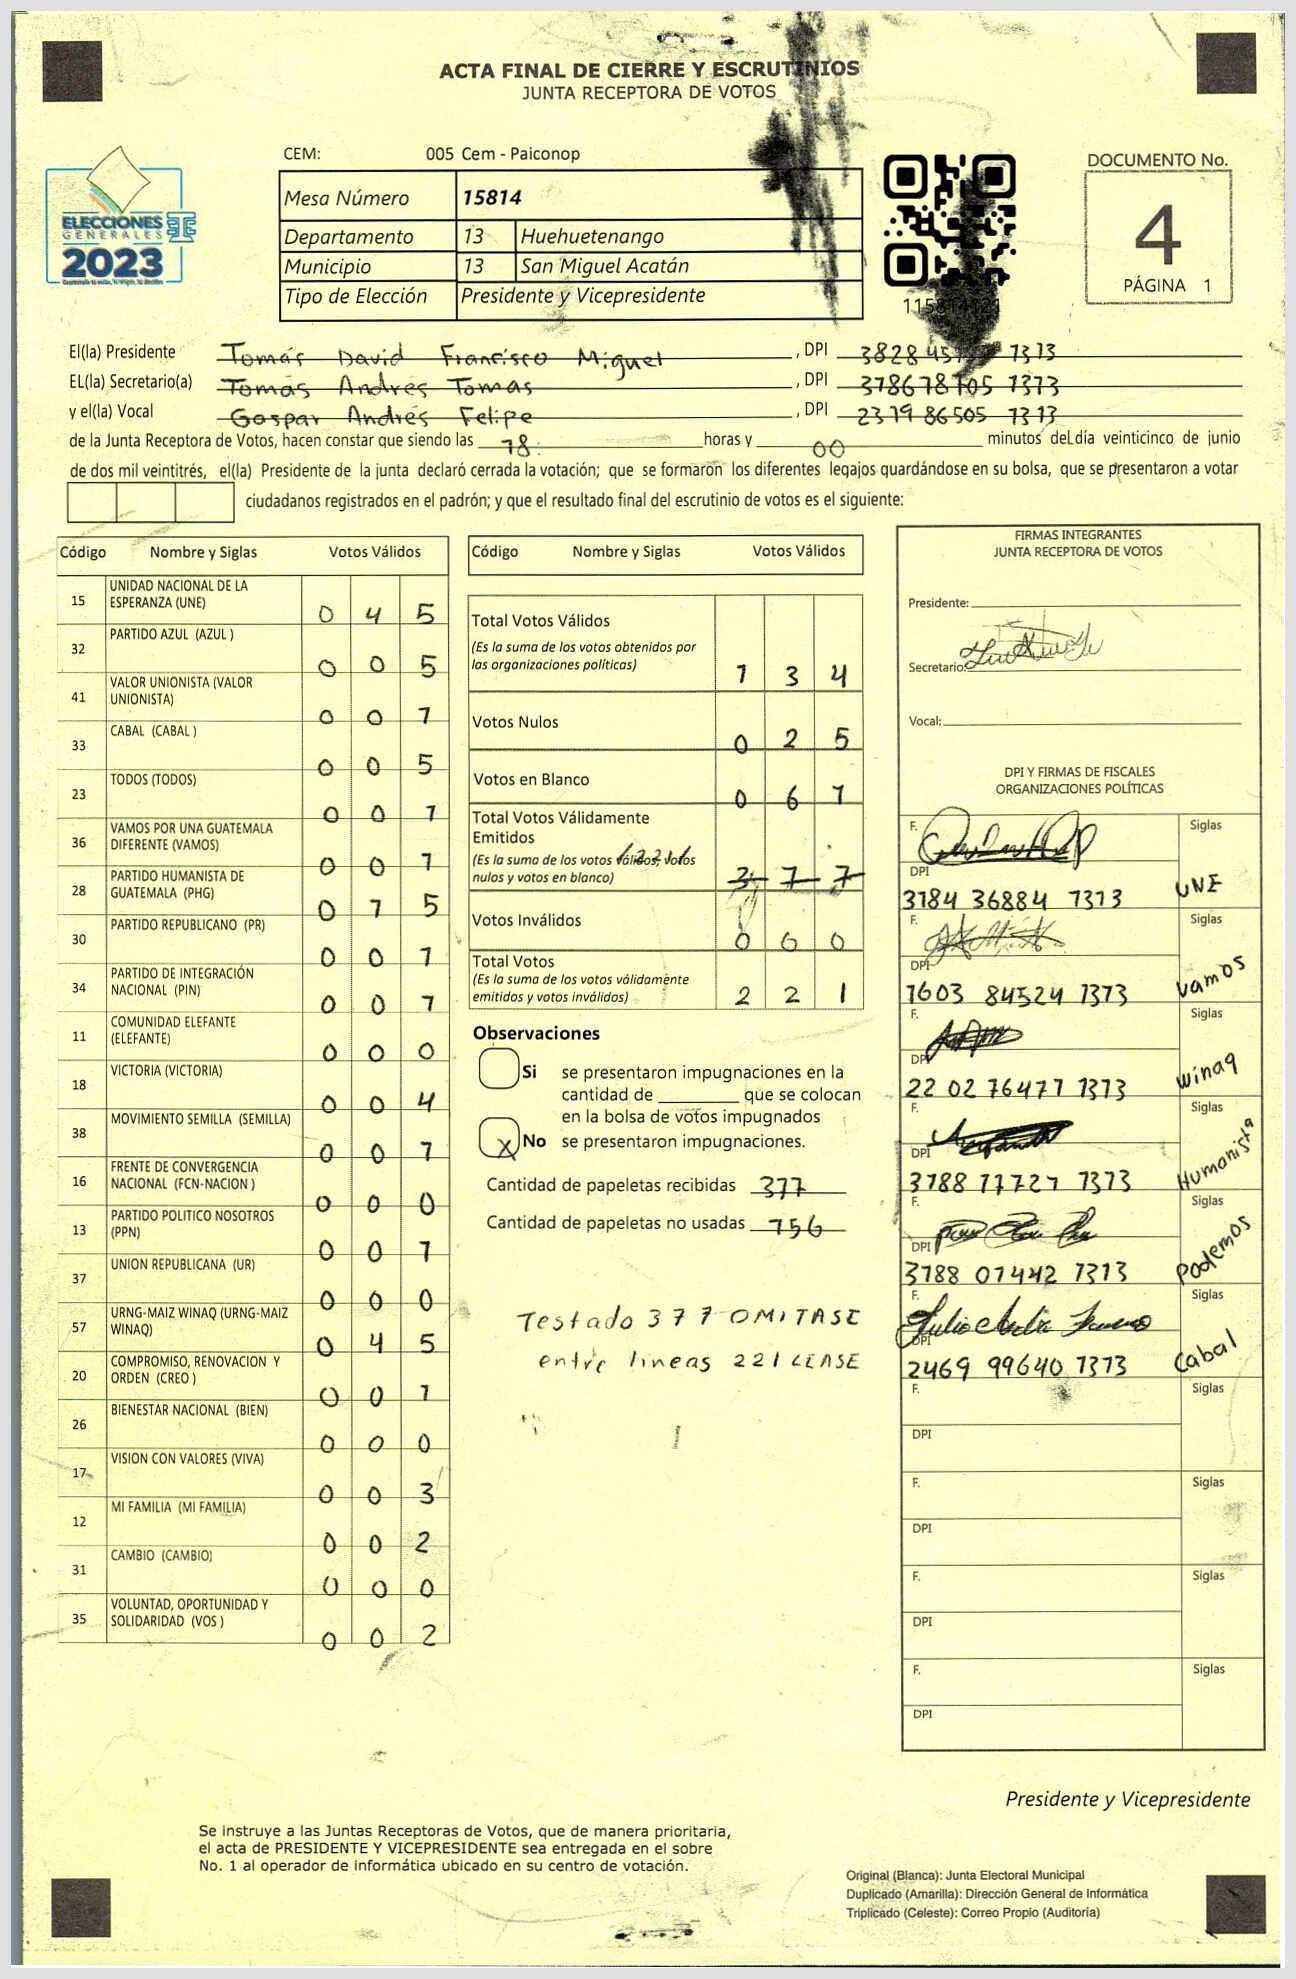 ACTA FINAL DE CIERRE Y ESCRUTINIOS
JUNTA RECEPTORA DE VOTOS
CEM: 005 Cem - Paiconop
DOCUMENTO No.
4
PÁGINA 1
ELECCIONES
GENERALES
2023
Mesa Número 15814
Departamento 13 Huehuetenango
Municipio 13 San Miguel Acatán
Tipo de Elección Presidente y Vicepresidente
El(la) Presidente Tomás David Francisco Miguel , DPI 1313
EL(la) Secretario(a) Tomás Andrés Tomas , DPI
y el(la) Vocal Gaspar Andrés Felipe , DPI 2379 86505 1313
de la Junta Receptora de Votos, hacen constar que siendo las 18: horas y 00 minutos del día veinticinco de junio
de dos mil veintitrés, el(la) Presidente de la junta declaró cerrada la votación; que se formaron los diferentes legajos guardándose en su bolsa, que se presentaron a votar
ciudadanos registrados en el padrón; y que el resultado final del escrutinio de votos es el siguiente:
Código Nombre y Siglas Votos Válidos
15 UNIDAD NACIONAL DE LA
ESPERANZA (UNE) 0 4 5
32 PARTIDO AZUL (AZUL ) 0 0 5
41 VALOR UNIONISTA (VALOR
UNIONISTA) 0 0 1
33 CABAL (CABAL ) 0 0 5
23 TODOS (TODOS) 0 0 1
36 VAMOS POR UNA GUATEMALA
DIFERENTE (VAMOS) 0 0 1
28 PARTIDO HUMANISTA DE
GUATEMALA (PHG) 0 1 5
30 PARTIDO REPUBLICANO (PR) 0 0 1
34 PARTIDO DE INTEGRACIÓN
NACIONAL (PIN) 0 0 1
11 COMUNIDAD ELEFANTE
(ELEFANTE) 0 0 0
18 VICTORIA (VICTORIA) 0 0 4
38 MOVIMIENTO SEMILLA (SEMILLA) 0 0 1
16 FRENTE DE CONVERGENCIA
NACIONAL (FCN-NACION ) 0 0 0
13 PARTIDO POLITICO NOSOTROS
(PPN) 0 0 1
37 UNION REPUBLICANA (UR) 0 0 0
57 URNG-MAIZ WINAQ (URNG-MAIZ
WINAQ) 0 4 5
20 COMPROMISO, RENOVACION Y
ORDEN (CREO ) 0 0 1
26 BIENESTAR NACIONAL (BIEN) 0 0 0
17 VISION CON VALORES (VIVA) 0 0 3
12 MI FAMILIA (MI FAMILIA) 0 0 2
31 CAMBIO (CAMBIO) 0 0 0
35 VOLUNTAD, OPORTUNIDAD Y
SOLIDARIDAD (VOS ) 0 0 2
Código Nombre y Siglas Votos Válidos
Total Votos Válidos
(Es la suma de los votos obtenidos por
las organizaciones políticas) 1 3 4
Votos Nulos 0 2 5
Votos en Blanco 0 6 1
Total Votos Válidamente
Emitidos
(Es la suma de los votos válidos, votos
nulos y votos en blanco) 3 7 7
Votos Inválidos 0 0 0
Total Votos
(Es la suma de los votos válidamente
emitidos y votos inválidos) 2 2 1
Observaciones
Si se presentaron impugnaciones en la
cantidad de ________ que se colocan
en la bolsa de votos impugnados
X No se presentaron impugnaciones.
Cantidad de papeletas recibidas 377
Cantidad de papeletas no usadas 156
Testado 377 OMITASE
entre lineas 221 LEASE
FIRMAS INTEGRANTES
JUNTA RECEPTORA DE VOTOS
Presidente:
Secretario:
Vocal:
DPI Y FIRMAS DE FISCALES
ORGANIZACIONES POLÍTICAS
F. Siglas
DPI 3184 36884 1313 UNE
F. Siglas
DPI 1603 84524 1313 Vamos
F. Siglas
DPI 22 02 76477 1313 winaq
F. Siglas
DPI 3188 1313 Humanista
F. Siglas
DPI 3188 07442 1313 Podemos
F. Siglas
DPI 2469 99640 1313 Cabal
F. Siglas
DPI
F. Siglas
DPI
F. Siglas
DPI
F. Siglas
DPI
Presidente y Vicepresidente
Se instruye a las Juntas Receptoras de Votos, que de manera prioritaria,
el acta de PRESIDENTE Y VICEPRESIDENTE sea entregada en el sobre
No. 1 al operador de informática ubicado en su centro de votación.
Original (Blanca): Junta Electoral Municipal
Duplicado (Amarilla): Dirección General de Informática
Triplicado (Celeste): Correo Propio (Auditoría)